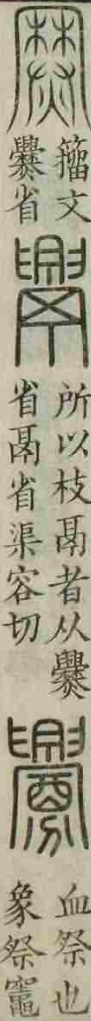 籀文
爨省
所以枝鬲者从爨
省鬲省渠容切
釁
血祭也
象祭竈